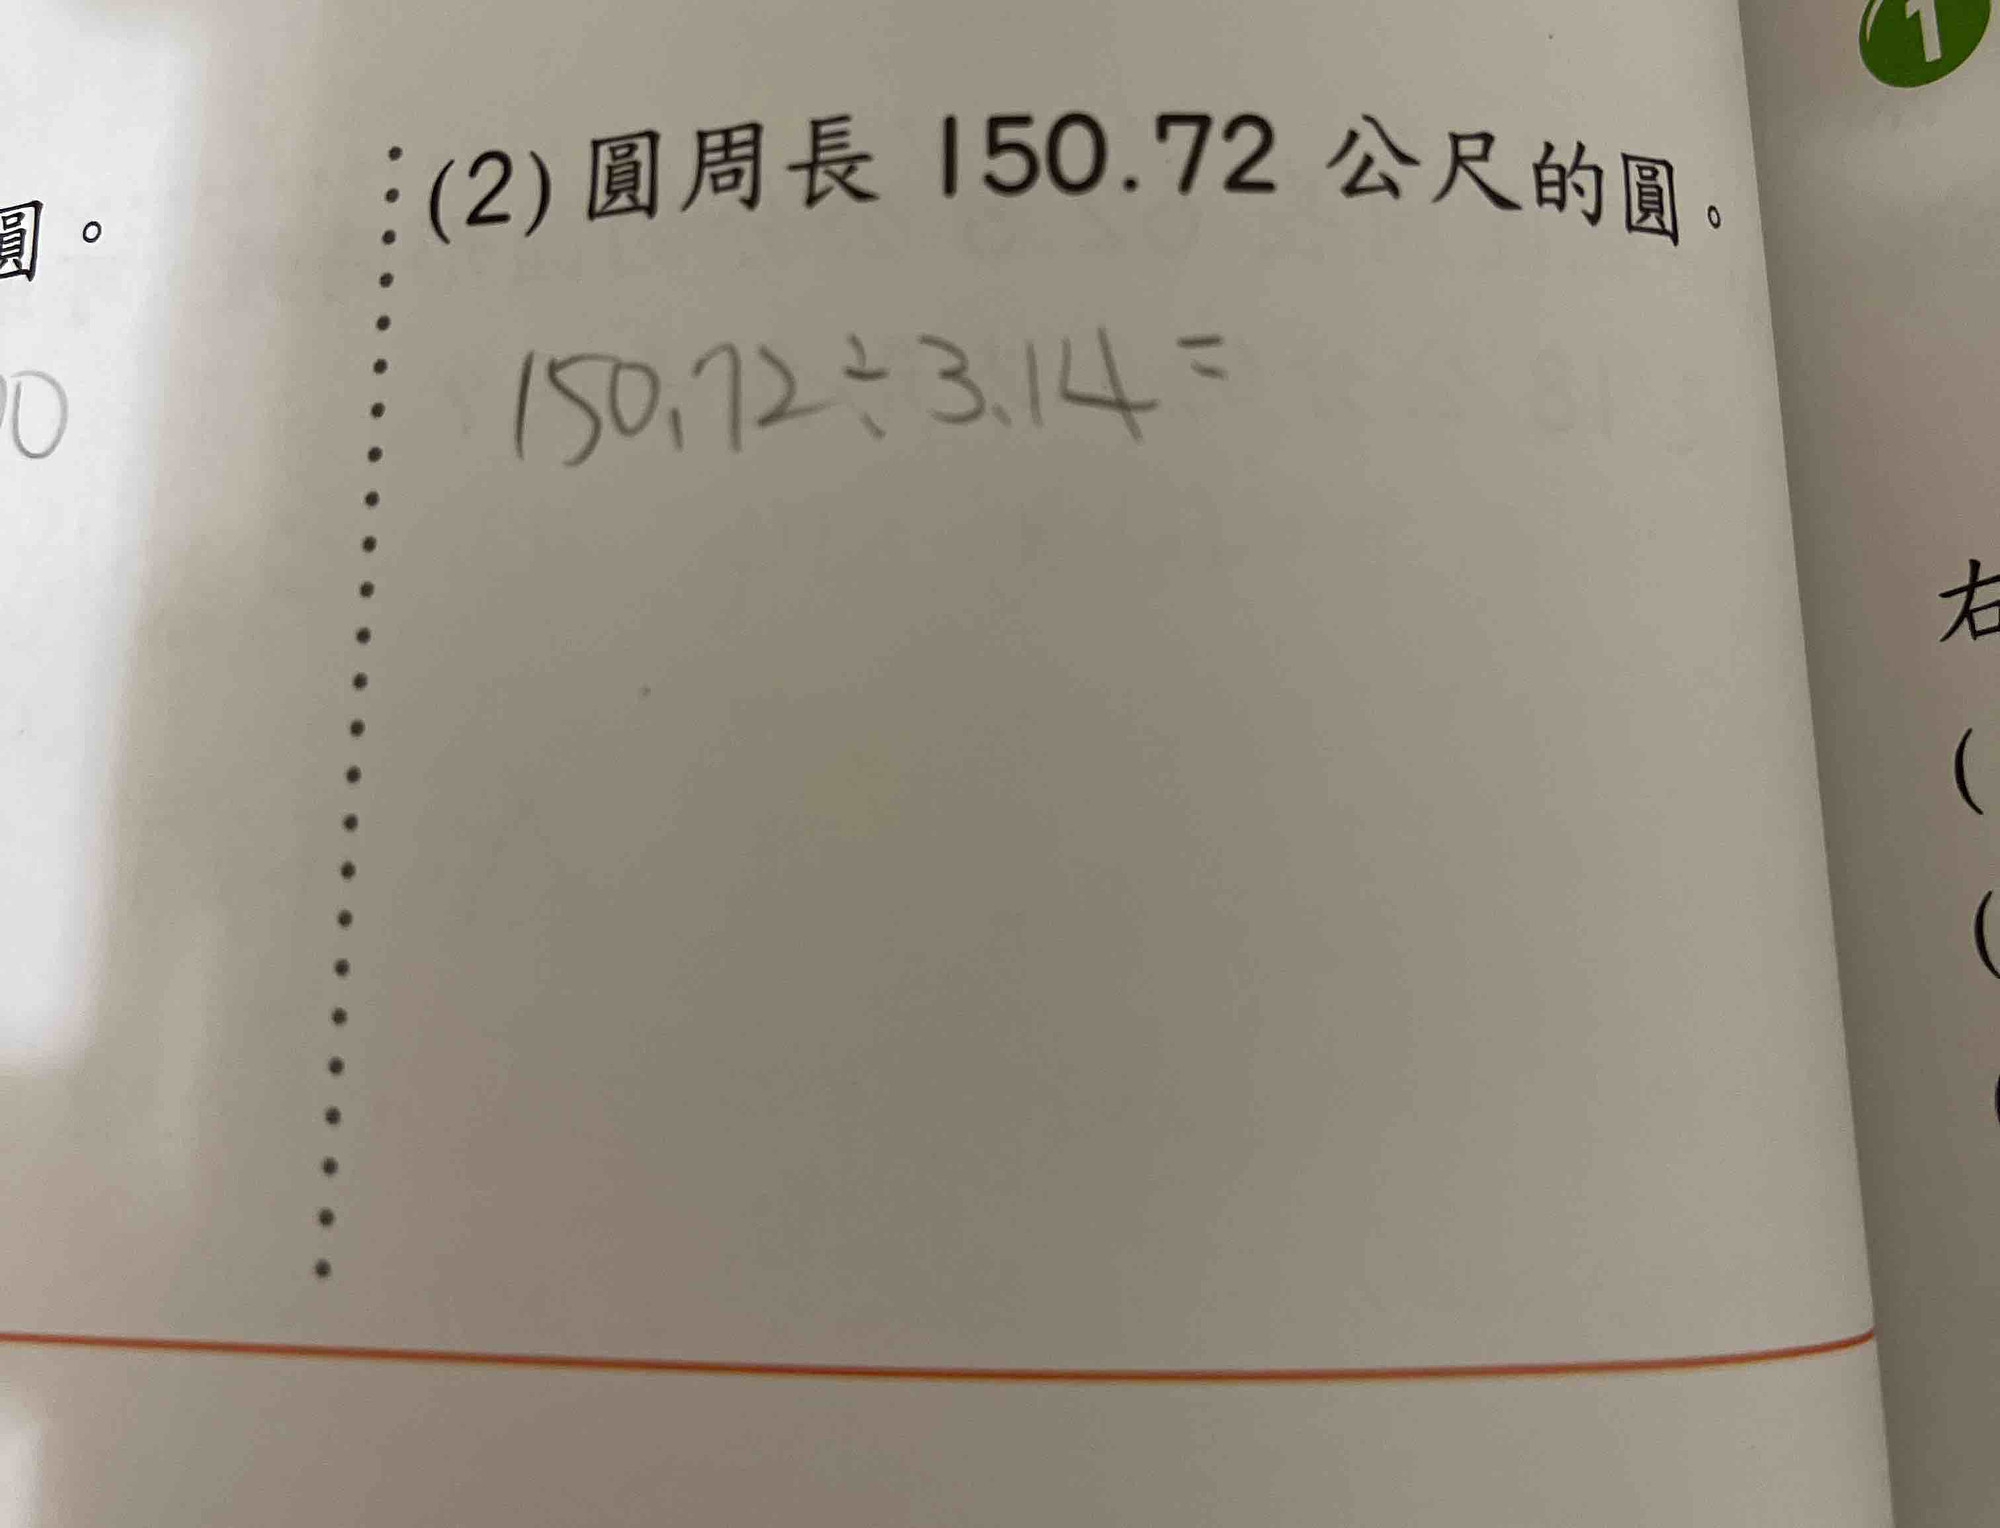 1
(2) 圓周長 150.72 公尺的圓。
圓。
150.72÷3.14=
0
右
(
(